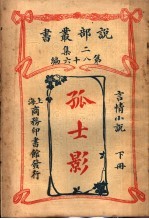 說部叢書
二集
第八十六編
言情小說
下冊
孤士影
上海
商務印書館發行